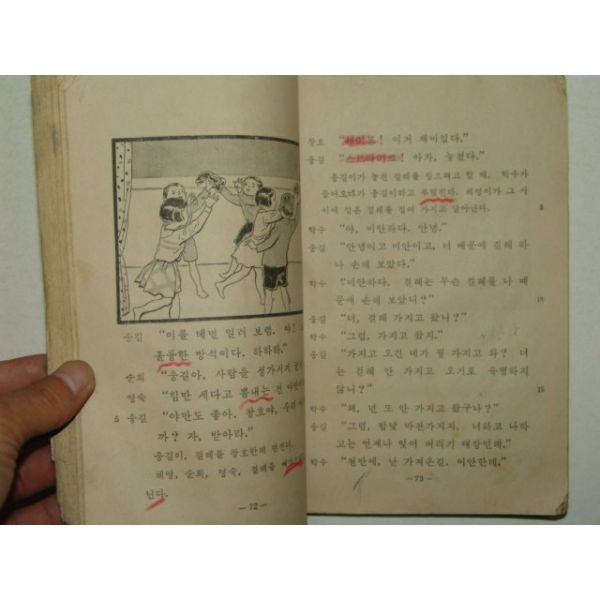 웅길 “이를 테면 일러 보렴. 야!
훌륭한 방석이다. 하하하.”
순희 “웅길아, 사람을 성가시게
정숙 “힘만 세다고 뽐내는 건 야만
5 웅길 “야만도 좋아. 창호야, 우리
까? 자, 받아라.”
웅길이, 걸레를 창호한테 던진다.
혜영, 순희, 정숙, 걸레를
닌다.
— 72 —
창호 “세이프! 이거 재미있다.”
웅길 “스트라이크! 아차, 놓쳤다.”
웅길이가 놓친 걸레를 집으려고 할 때, 학수가
들어오려다 웅길이하고 부딪친다. 혜영이가 그 사
이에 얼른 걸레를 집어 가지고 달아난다. 5
학수 “야, 미안하다. 안녕.”
웅길 “안녕이고 미안이고, 너 때문에 걸레 하
나 손해 보았다.”
학수 “미안하다. 걸레는 무슨 걸레를 나 때
문에 손해 보았니?” 10
웅길 “너, 걸레 가지고 왔니?”
학수 “그럼, 가지고 왔지.”
웅길 “가지고 오긴 네가 뭘 가지고 와? 너
는 걸레 안 가지고 오기로 유명하지
않니?” 15
학수 “왜, 넌 또 안 가지고 왔구나?”
웅길 “그럼, 밤낮 마찬가지지. 너하고 나하
고는 언제나 잊어 버리기 대장인데.”
학수 “천만에, 난 가져온걸. 미안한데.”
— 73 —